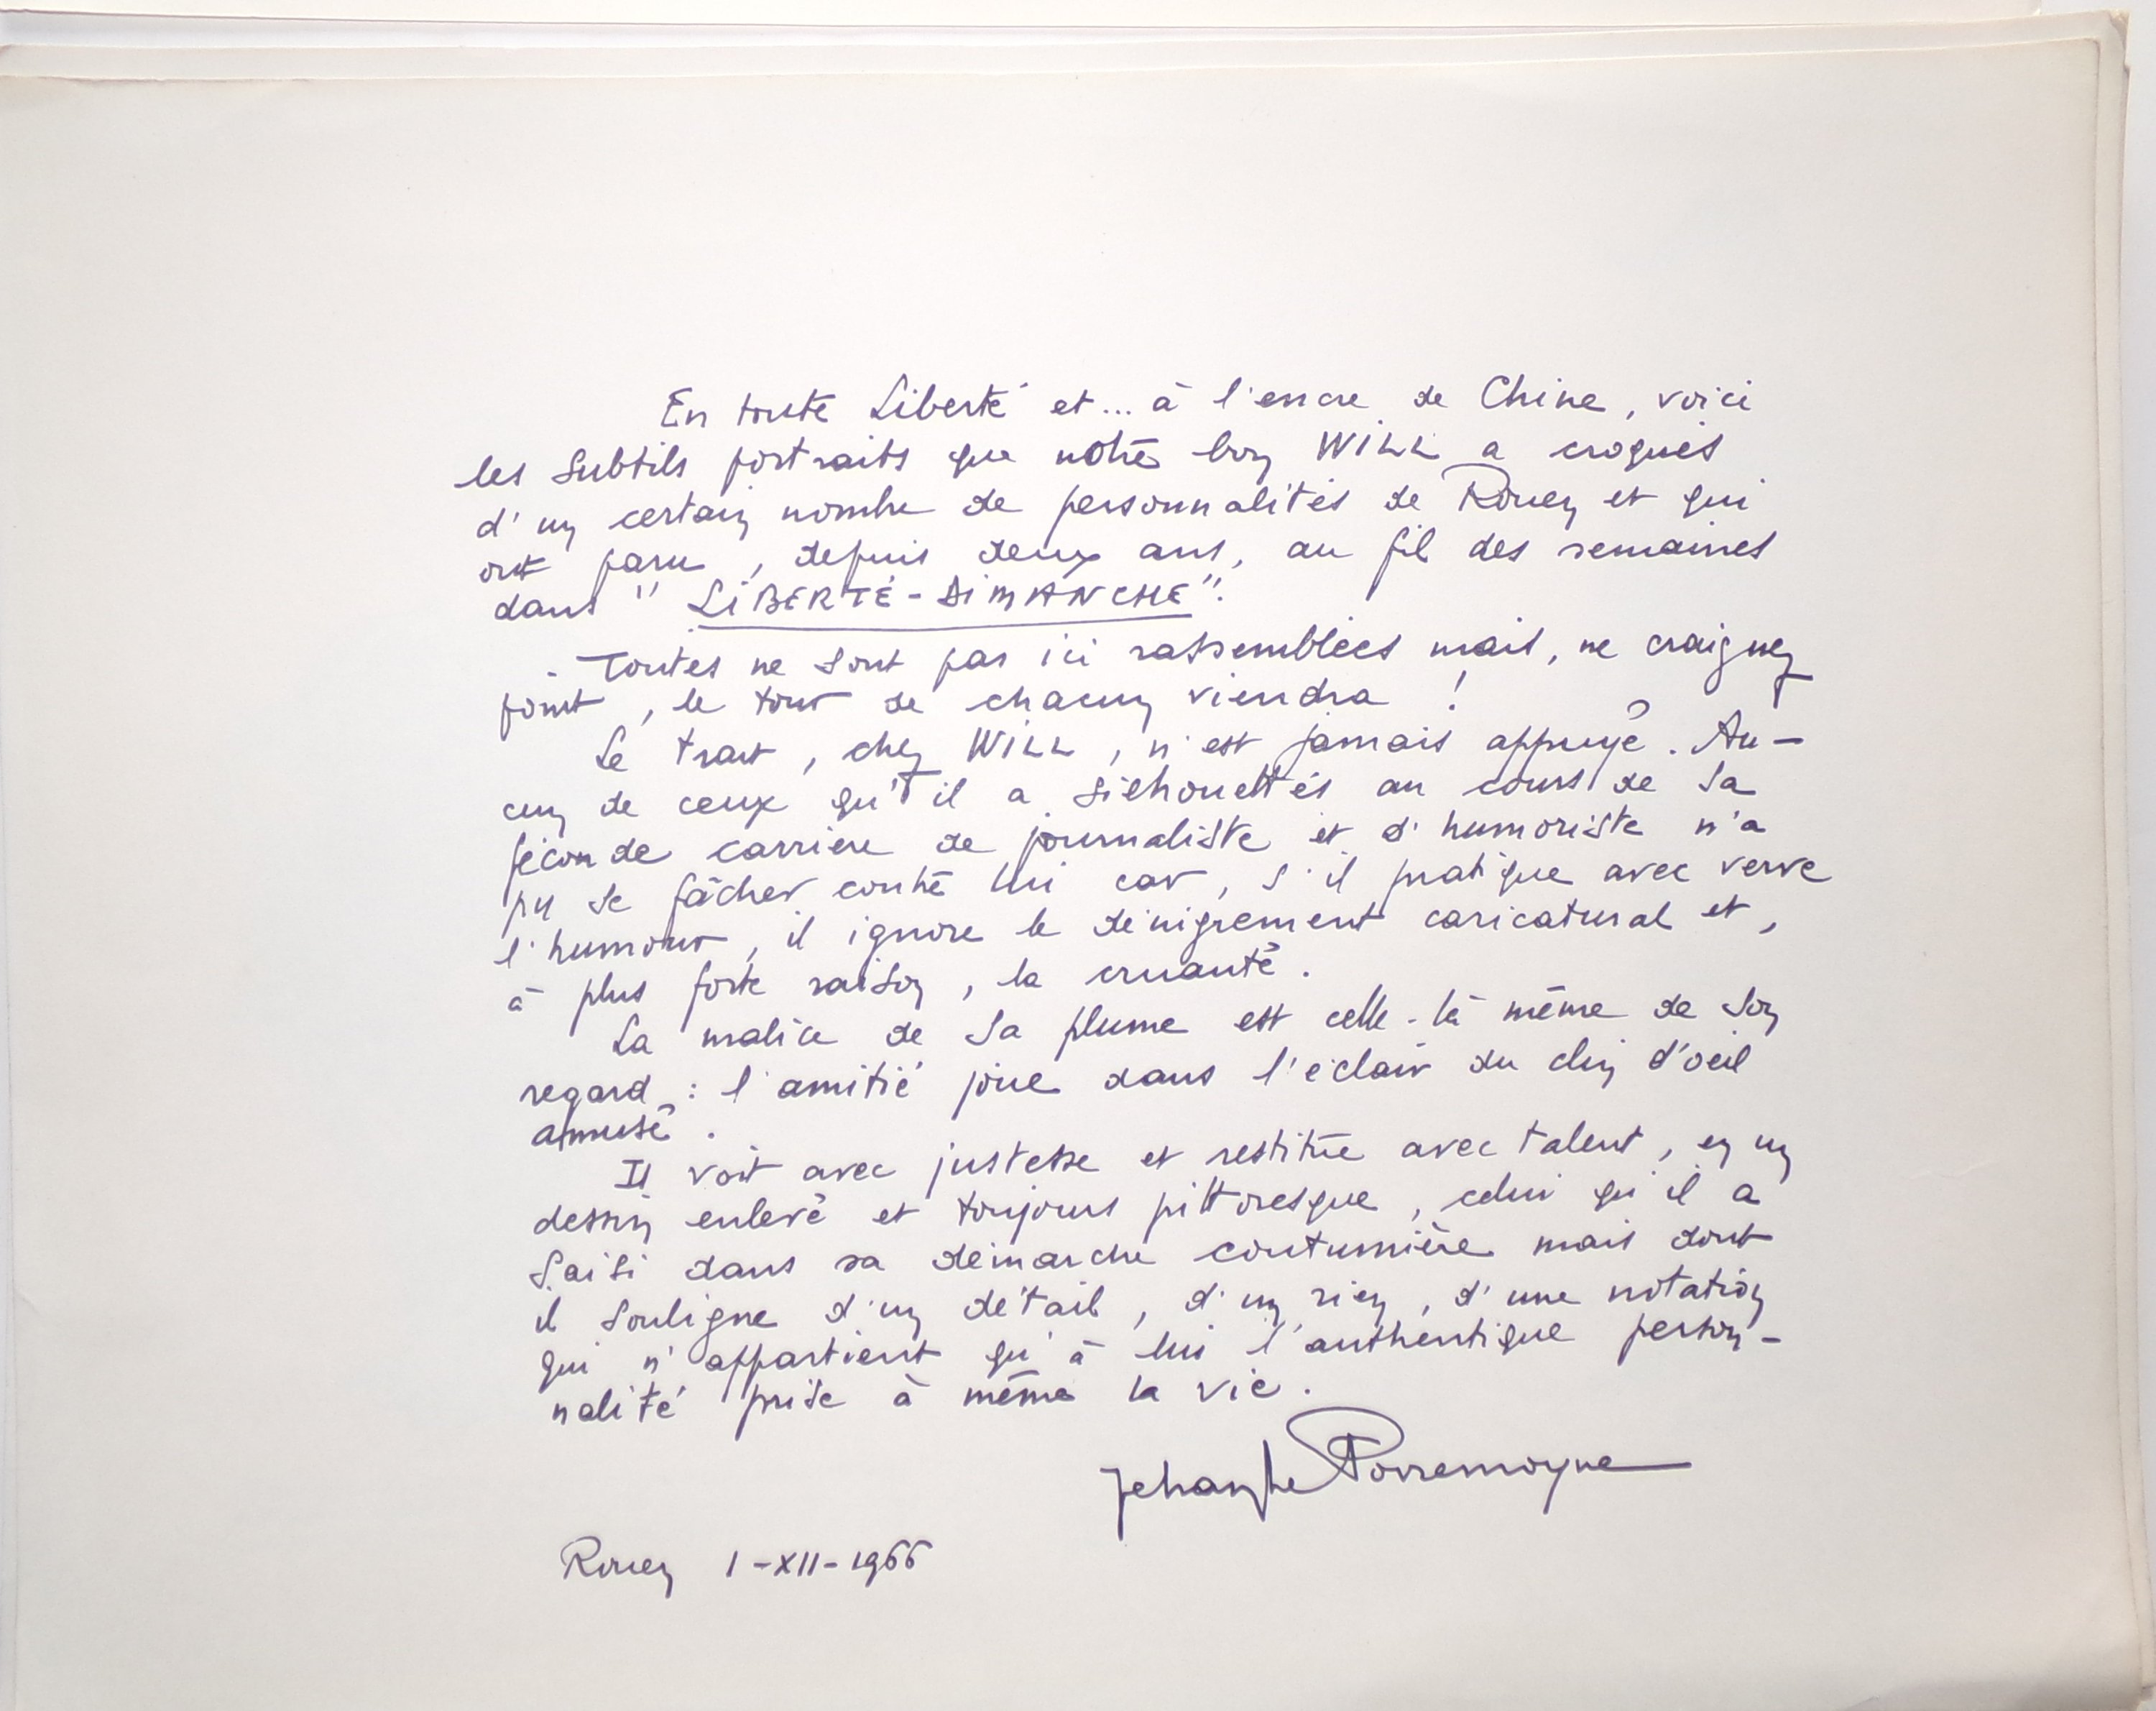 En toute Liberté et... à l'encre de Chine, voici
les subtils portraits que notre bon WILL a croqués
d'un certain nombre de personnalités de Rouen et qui
ont paru, depuis deux ans, au fil des semaines
dans "LIBERTÉ-DIMANCHE".
Toutes ne sont pas ici rassemblées mais, ne craignez
point, le tour de chacun viendra !
Le trait, chez WILL, n'est jamais appuyé. Au-
cun de ceux qu'il a silhouettés au cours de sa
féconde carrière de journaliste et d'humoriste n'a
pu se fâcher contre lui car, s'il pratique avec verve
l'humour, il ignore le dénigrement caricatural et,
à plus forte raison, la cruauté.
La malice de sa plume est celle-là même de son
regard : l'amitié joue dans l'éclair du clin d'oeil
amusé.
Il voit avec justesse et restitue avec talent, en un
dessin enlevé et toujours pittoresque, celui qu'il a
saisi dans sa démarche coutumière mais dont
il souligne d'un détail, d'un rien, d'une notation
qui n'appartient qu'à lui l'authentique person-
nalité prise à même la vie.
Pierremoyne
Rouen 1-XII-1966